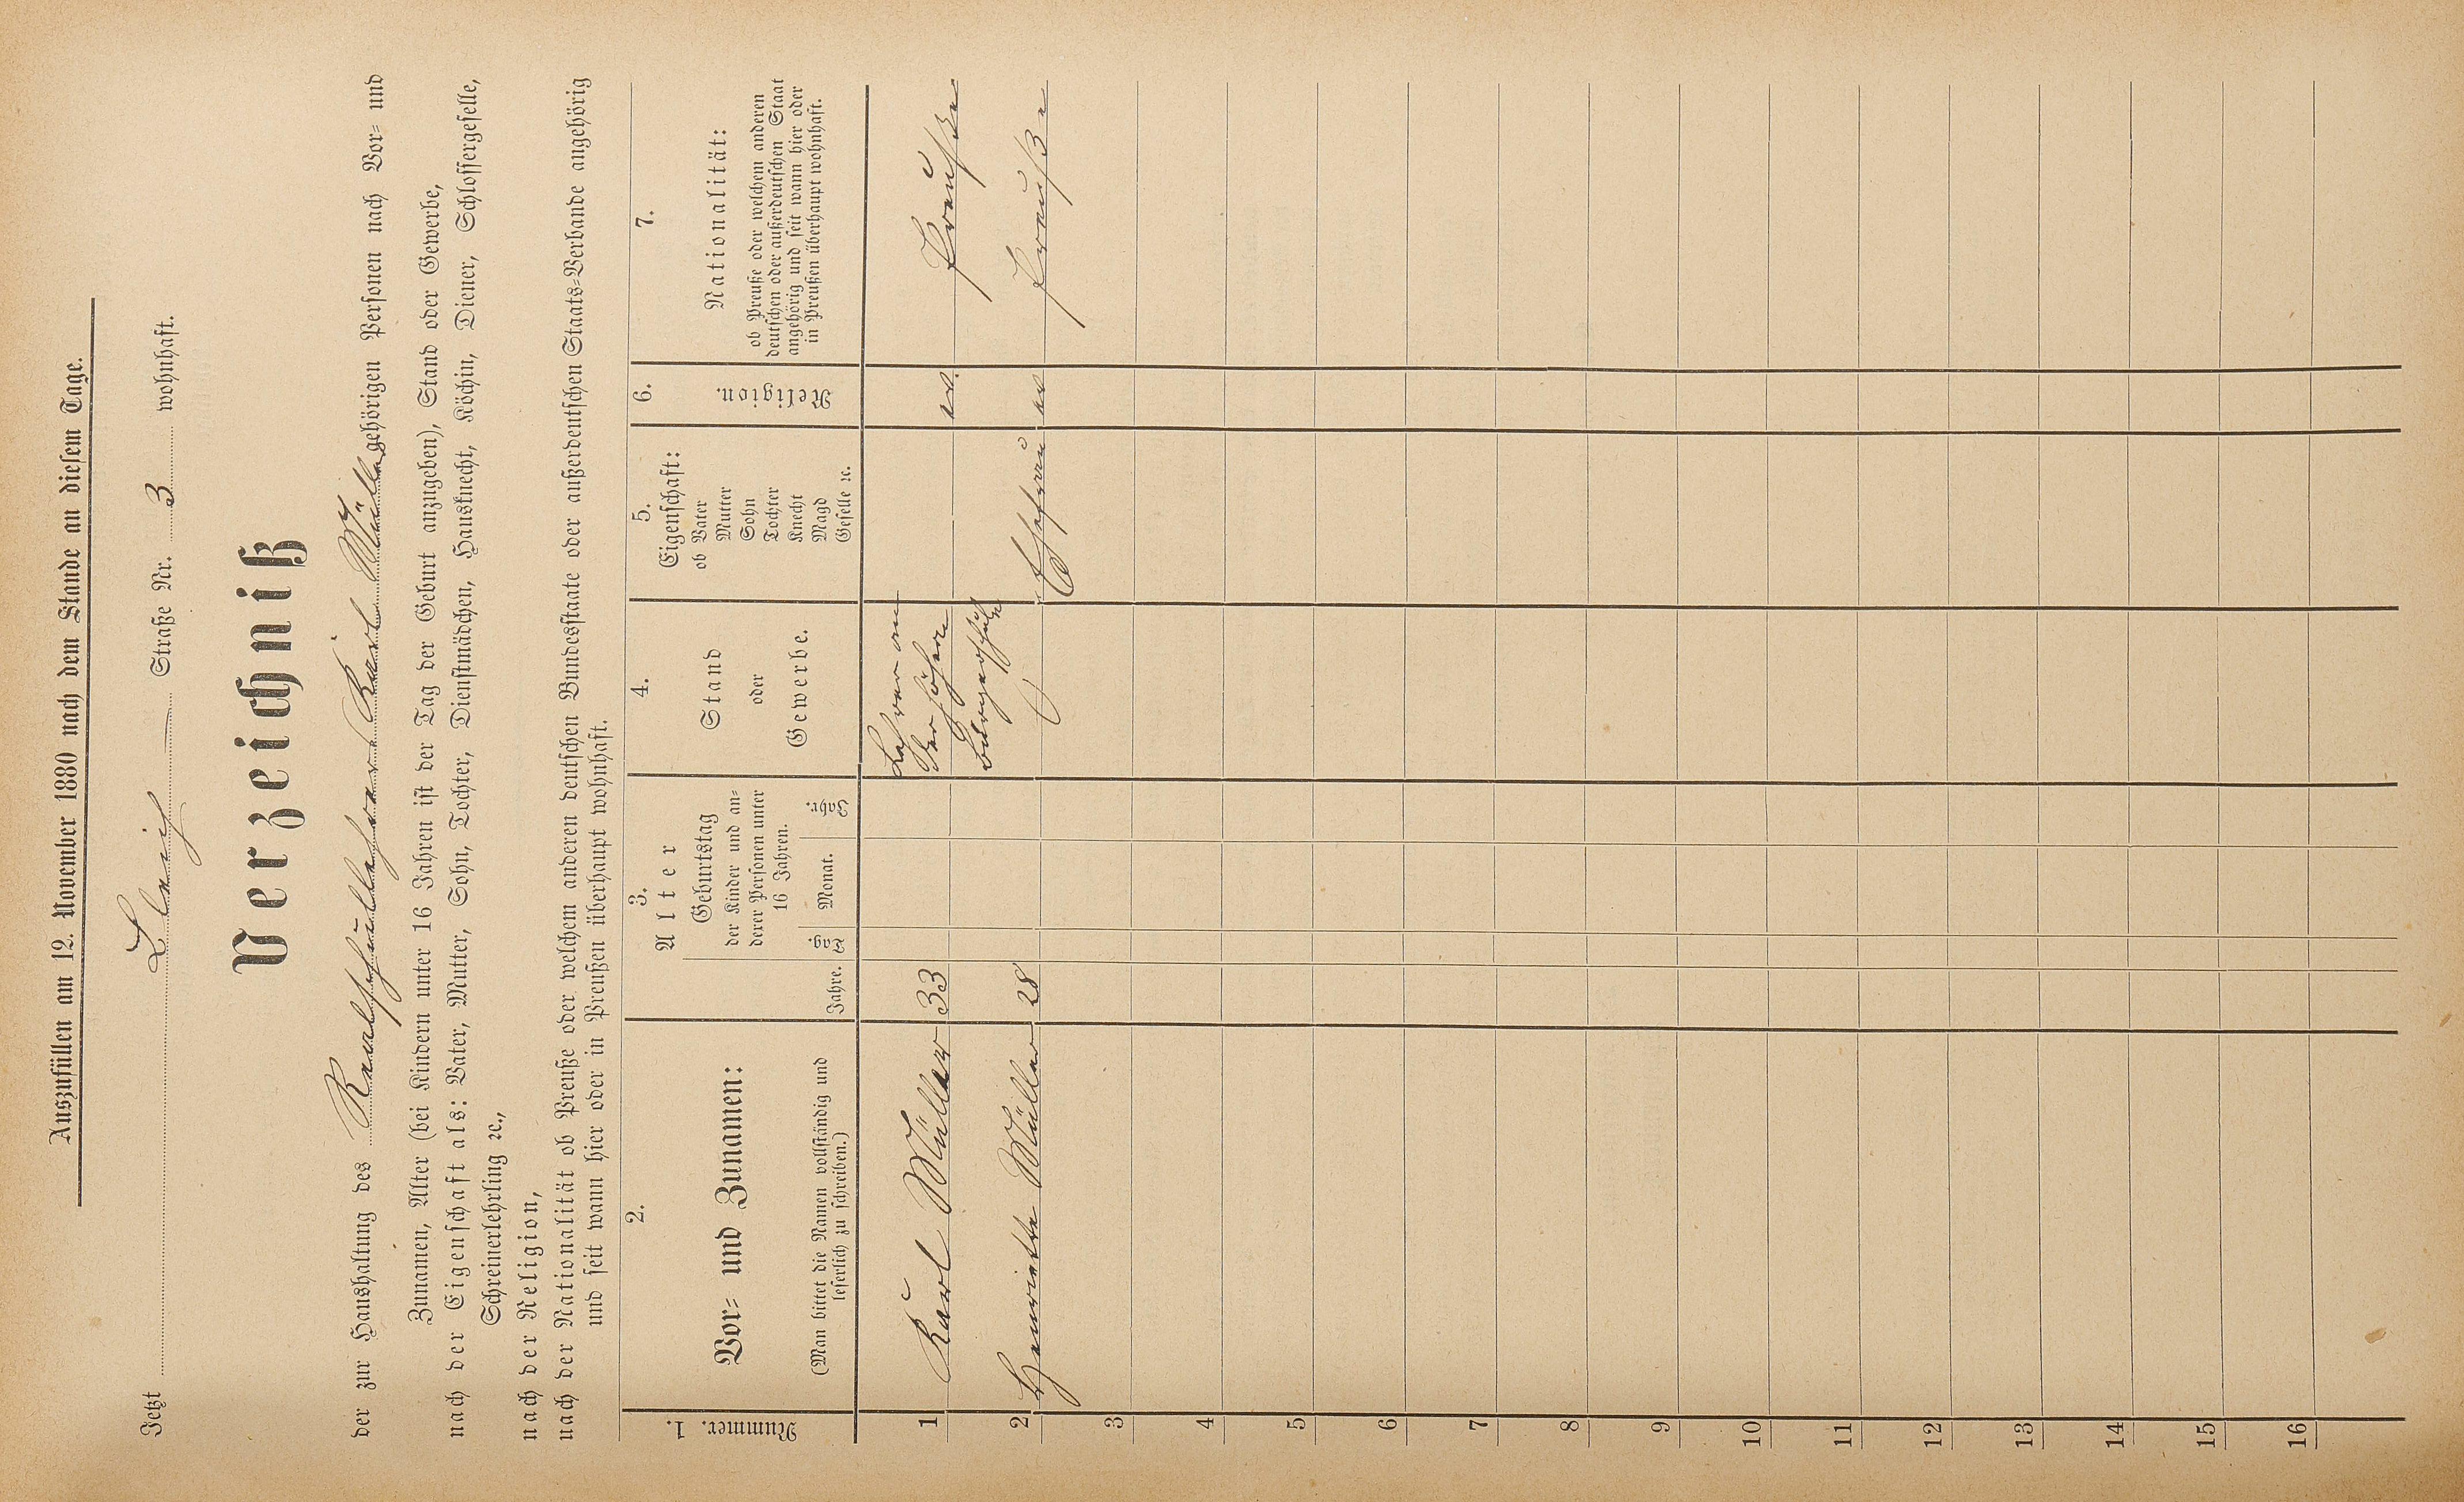 Auszufüllen am 12. November 1880 nach dem Stande an diesem Tage.
Jetzt Bleich — Straße Nr. 3 wohnhaft.
Verzeichniß
der zur Haushaltung des Realschullehrer Karl Müller gehörigen Personen nach Vor- und
Zunamen, Alter (bei Kindern unter 16 Jahren ist der Tag der Geburt anzugeben), Stand oder Gewerbe,
nach der Eigenschaft als: Vater, Mutter, Sohn, Tochter, Dienstmädchen, Hausknecht, Köchin, Diener, Schlossergeselle,
Schreinerlehrling ꝛc.,
nach der Religion,
nach der Nationalität ob Preuße oder welchem anderen deutschen Bundesstaate oder außerdeutschen Staats-Verbande angehörig
und seit wann hier oder in Preußen überhaupt wohnhaft.
1.
Nummer.
2.
Vor- und Zunamen:
(Man bittet die Namen vollständig und
leserlich zu schreiben.)
3.
Alter
Jahre.
Geburtstag
der Kinder und an-
derer Personen unter
16 Jahren.
Tag
Monat.
Jahr.
4.
Stand
oder
Gewerbe.
5.
Eigenschaft:
ob Vater
Mutter
Sohn
Tochter
Knecht
Magd
Geselle ꝛc.
6.
Religion.
7.
Nationalität:
ob Preuße oder welchem anderen
deutschen oder außerdeutschen Staat
angehörig und seit wann hier oder
in Preußen überhaupt wohnhaft.
1 Karl Müller 33 Lehrer an der höheren Bürgerschule ev. Preuße
2 Henriette Müller 28 Ehefrau ev Preuße
3
4
5
6
7
8
9
10
11
12
13
14
15
16